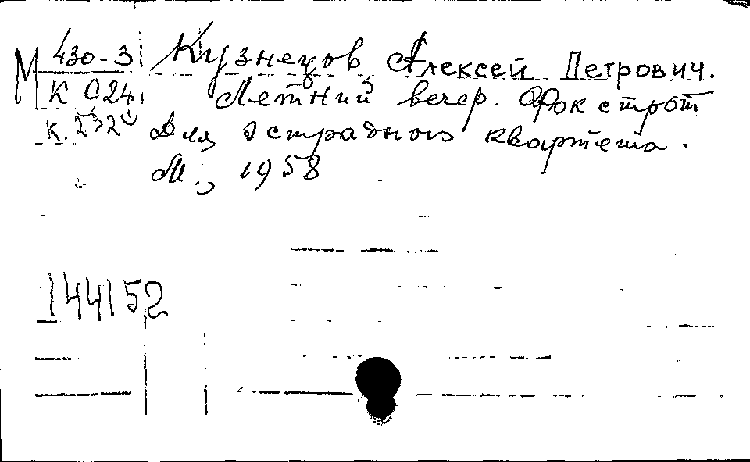 М 430-3 Кузнецов Алексей Петрович.
К 024 Летний вечер. Фокстрот
К. 2320 для эстрадного квартета.
М., 1958
144152